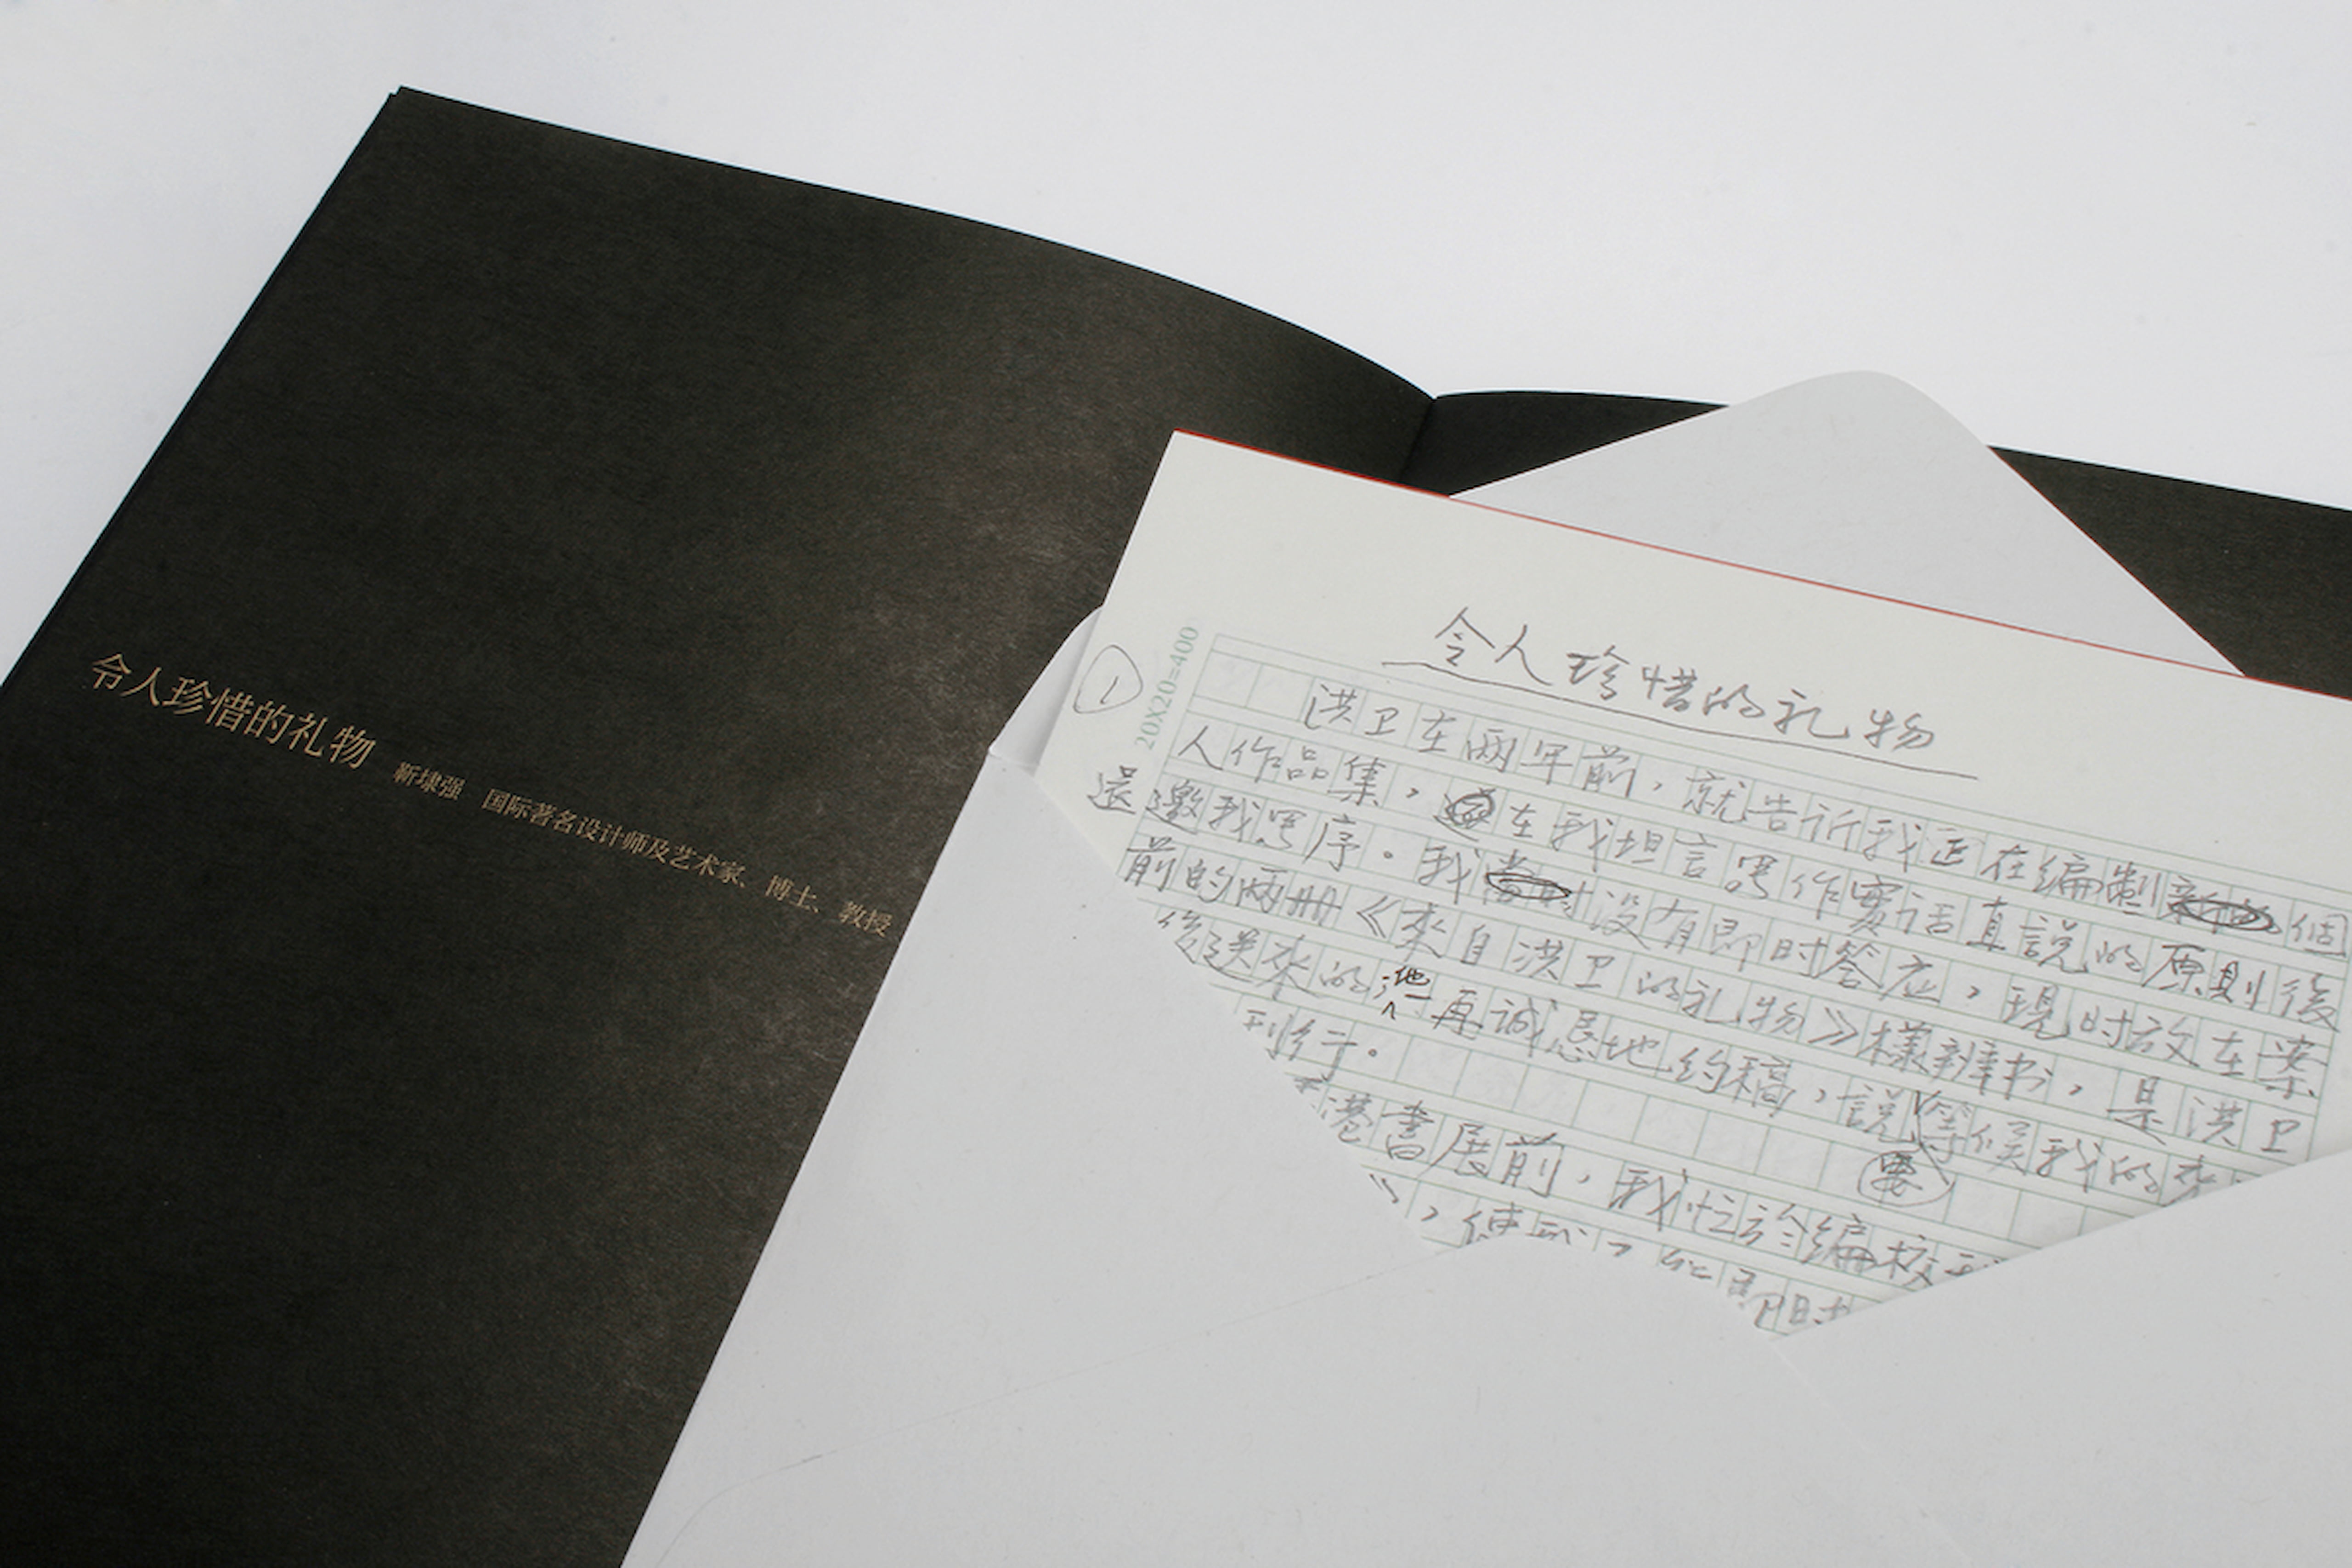 令人珍惜的礼物 靳埭强 国际著名设计师及艺术家、博士、教授
令人珍惜的礼物
1
20X20=400
洪卫在两年前，就告诉我正在编制個
人作品集，在我坦言写作實话直説的原則後
還邀我写序。我没有即时答应，現时放在案
前的两册《來自洪卫的礼物》樣辦书，是洪卫
送來的。他再诚恳地约稿，説要等候我的
刊行。
港書展前，我忙於編校
，使我